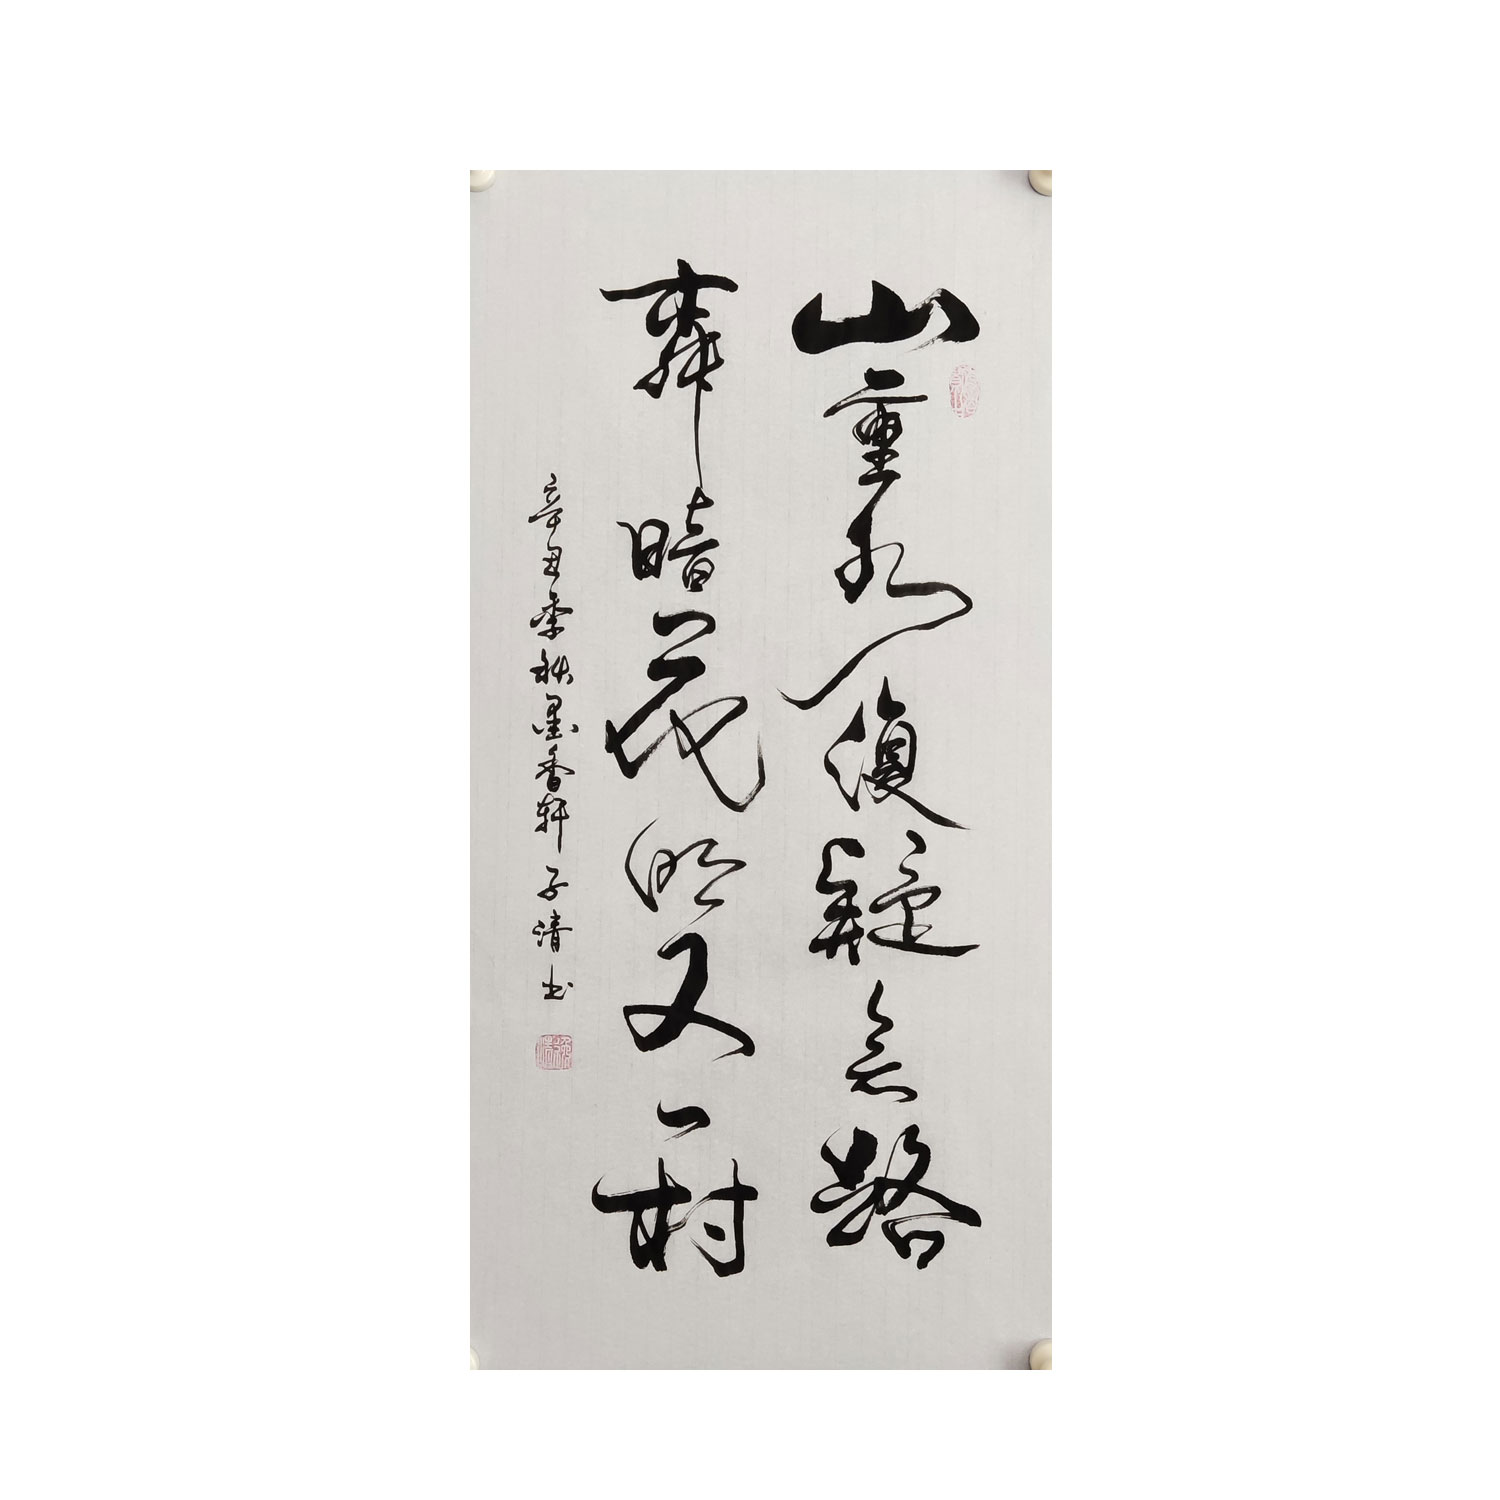 山重水復疑無路
柳暗花明又一村
辛丑季秋墨香軒子清书